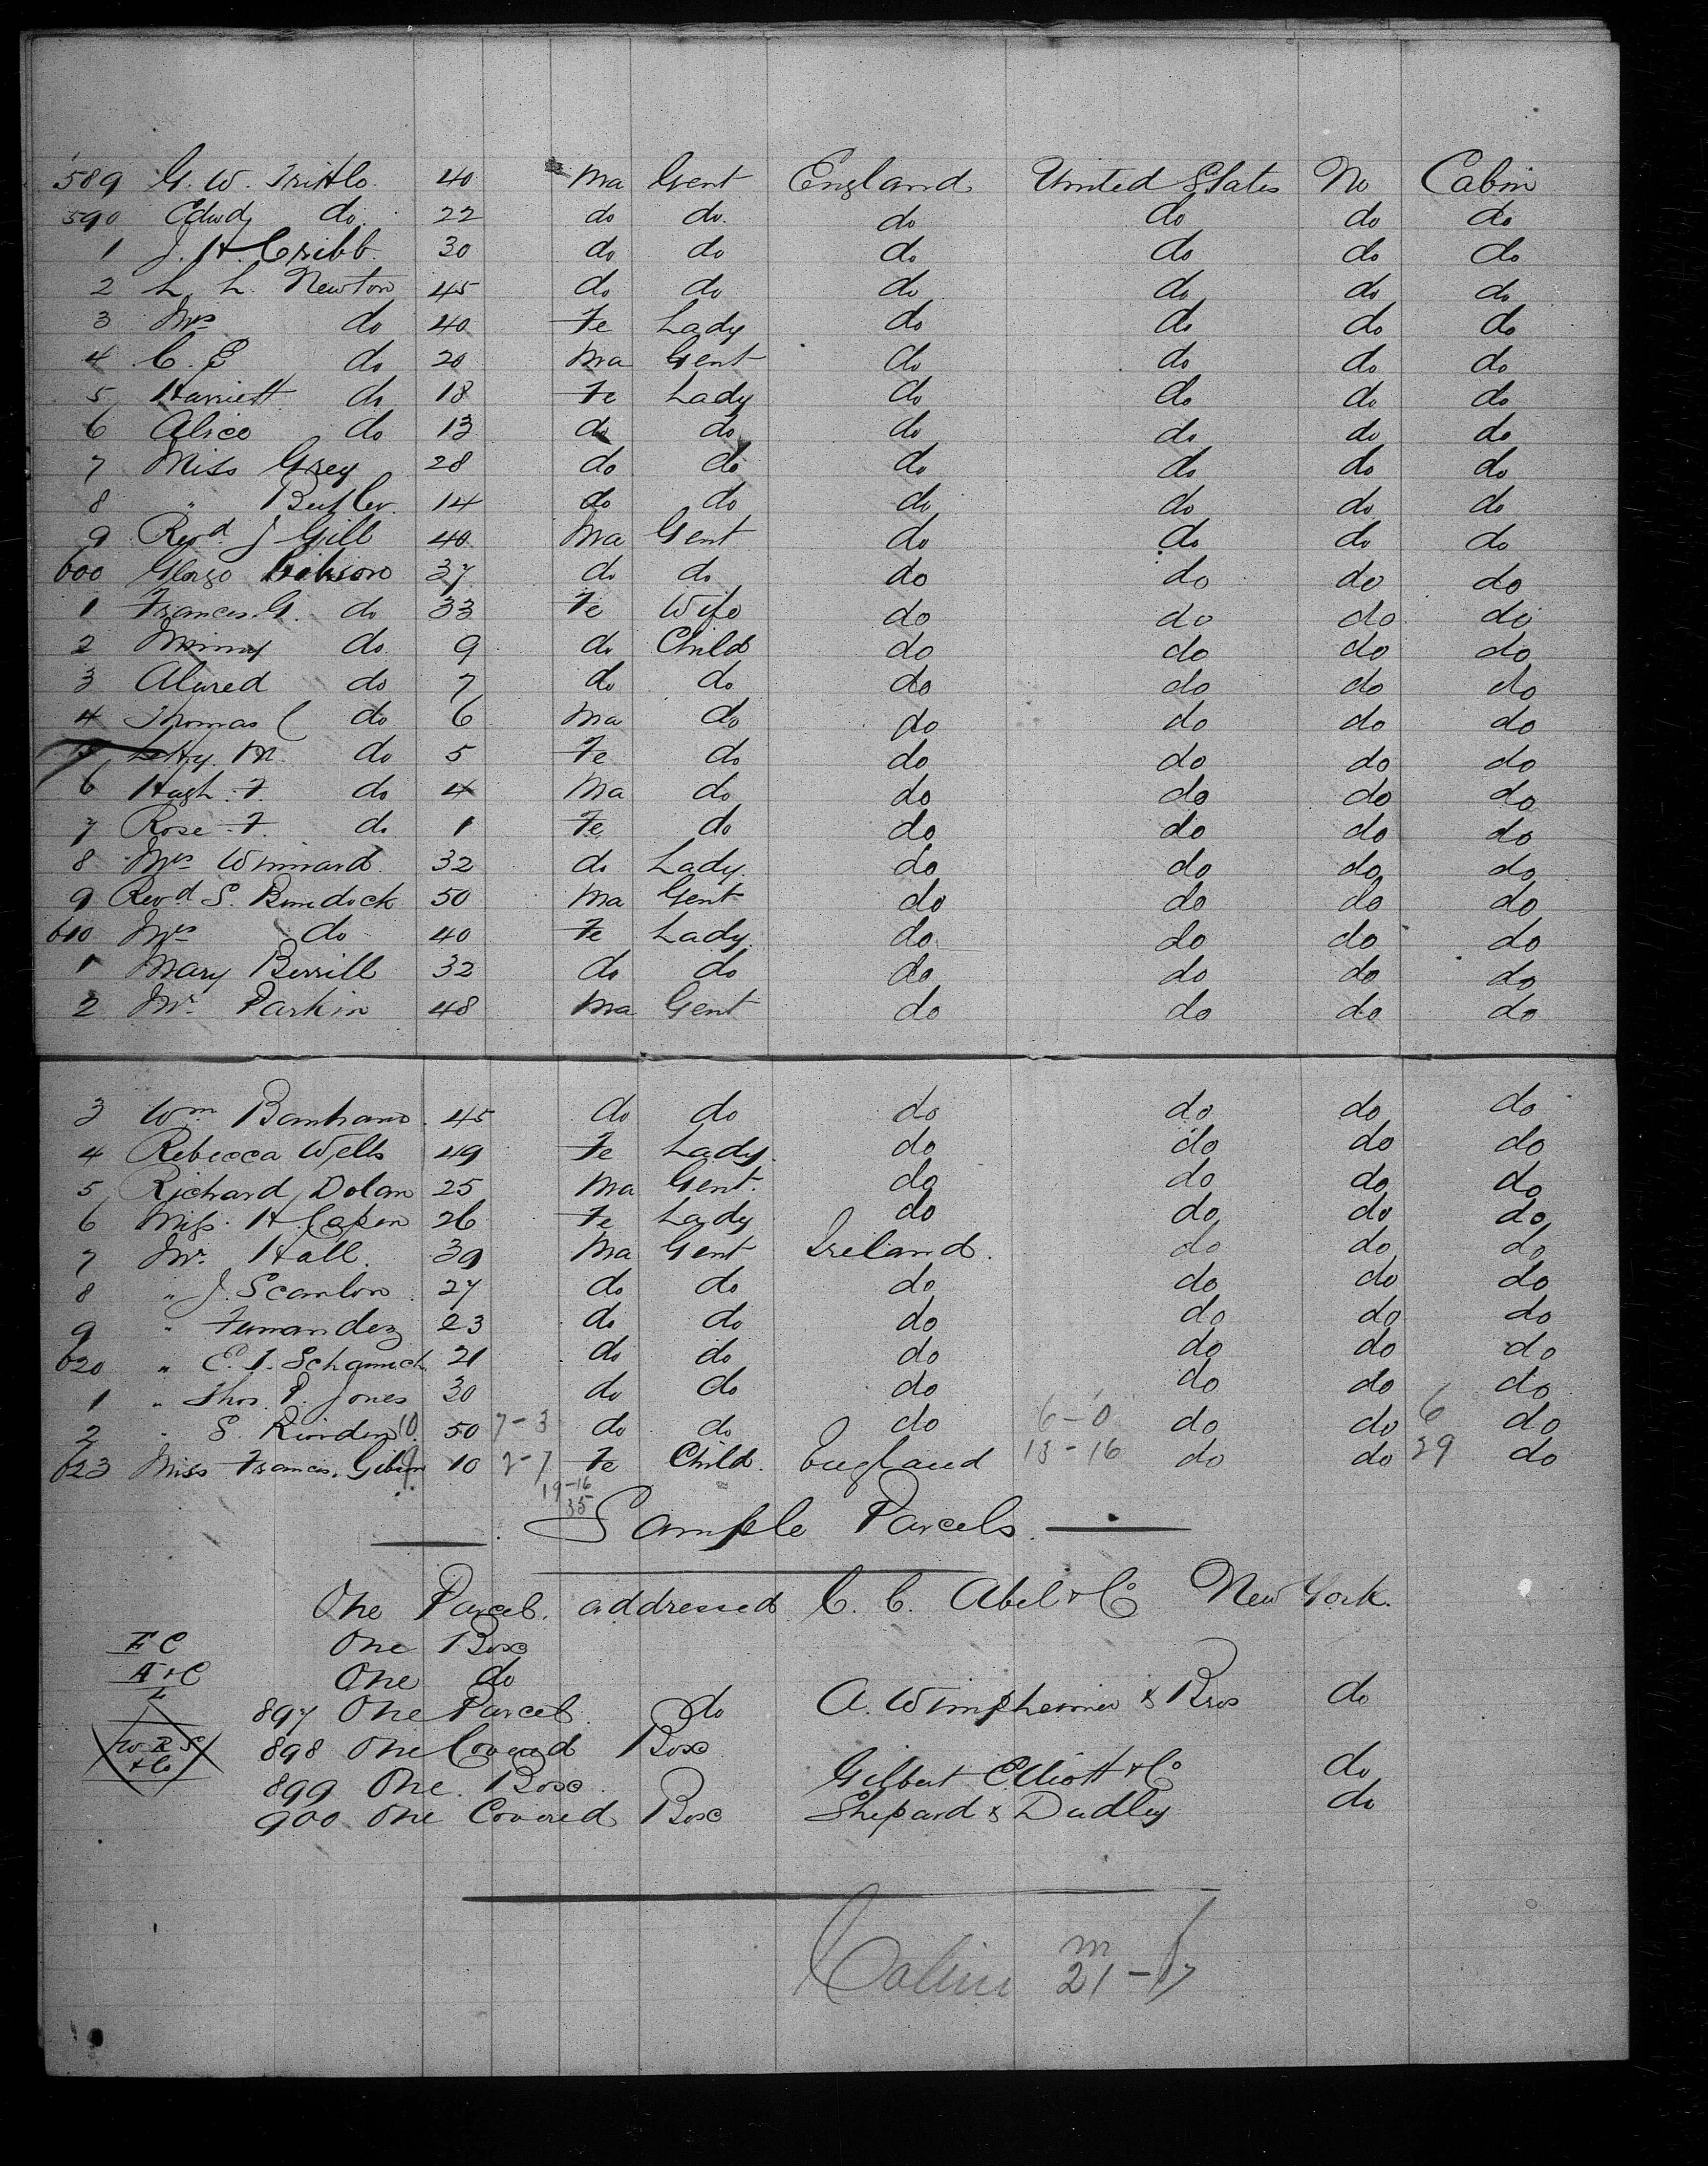 589 G. W. 40 Ma Gent England United States No Cabin
590 Edwd do 22 do do do do do do
1 J. H. Cribb 30 do do do do do do
2 L. L. Newton 45 do do do do do do
3 Mrs do 40 Fe Lady do do do do
4 C. E do 20 Ma Gent do do do do
5 Harriett do 18 Fe Lady do do do do
6 Alice do 13 do do do do do do
7 Miss Grey 28 do do do do do do
8 " Butler 14 do do do do do do
9 Revd J Gill 40 Ma Gent do do do do
600 George Gibson 37 do do do do do do
1 Frances G. do 33 Fe Wife do do do do
2 Minny do 9 do Child do do do do
3 Alured do 7 do do do do do do
4 Thomas C do 6 Ma do do do do do
5 Letty M. do 5 Fe do do do do do
6 Hugh F. do 4 Ma do do do do do
7 Rose F. do 1 Fe do do do do do
8 Mrs Winnard 32 do Lady do do do do
9 Revd S. 50 Ma Gent do do do do
610 Mrs do 40 Fe Lady do do do do
1 Mary Berrill 32 do do do do do do
2 Mr. Parkin 48 Ma Gent do do do do
3 Wm 45 do do do do do do
4 Rebecca Wells 49 Fe Lady do do do do
5 Richard Dolan 25 Ma Gent do do do do
6 Miss H. Capen 26 Fe Lady do do do do
7 Mr. Hall 39 Ma Gent Ireland do do do
8 " J. Scanlon 27 do do do do do do
9 " Fernandez 23 do do do do do do
620 " E. J. 21 do do do do do do
1 " Thos. P. Jones 30 do do do do do do
2 " S. 10 50 7-3 do do do 6-0 do do 6 do
623 Miss Frances Gibson 9 10 2-7 Fe Child England 13-16 do do 29 do
19-16
35
Sample Parcels
One Parcel addressed C. C. Abel & Co New York.
F C One Box
A & C One do
L
897 One Parcel do A. Wimpheimer & Bros do
W R S & Co 898 One Covered Box
899 One Box Gilbert Elliott & Co do
900 One Covered Box Shepard & Dudley do
m
21-17